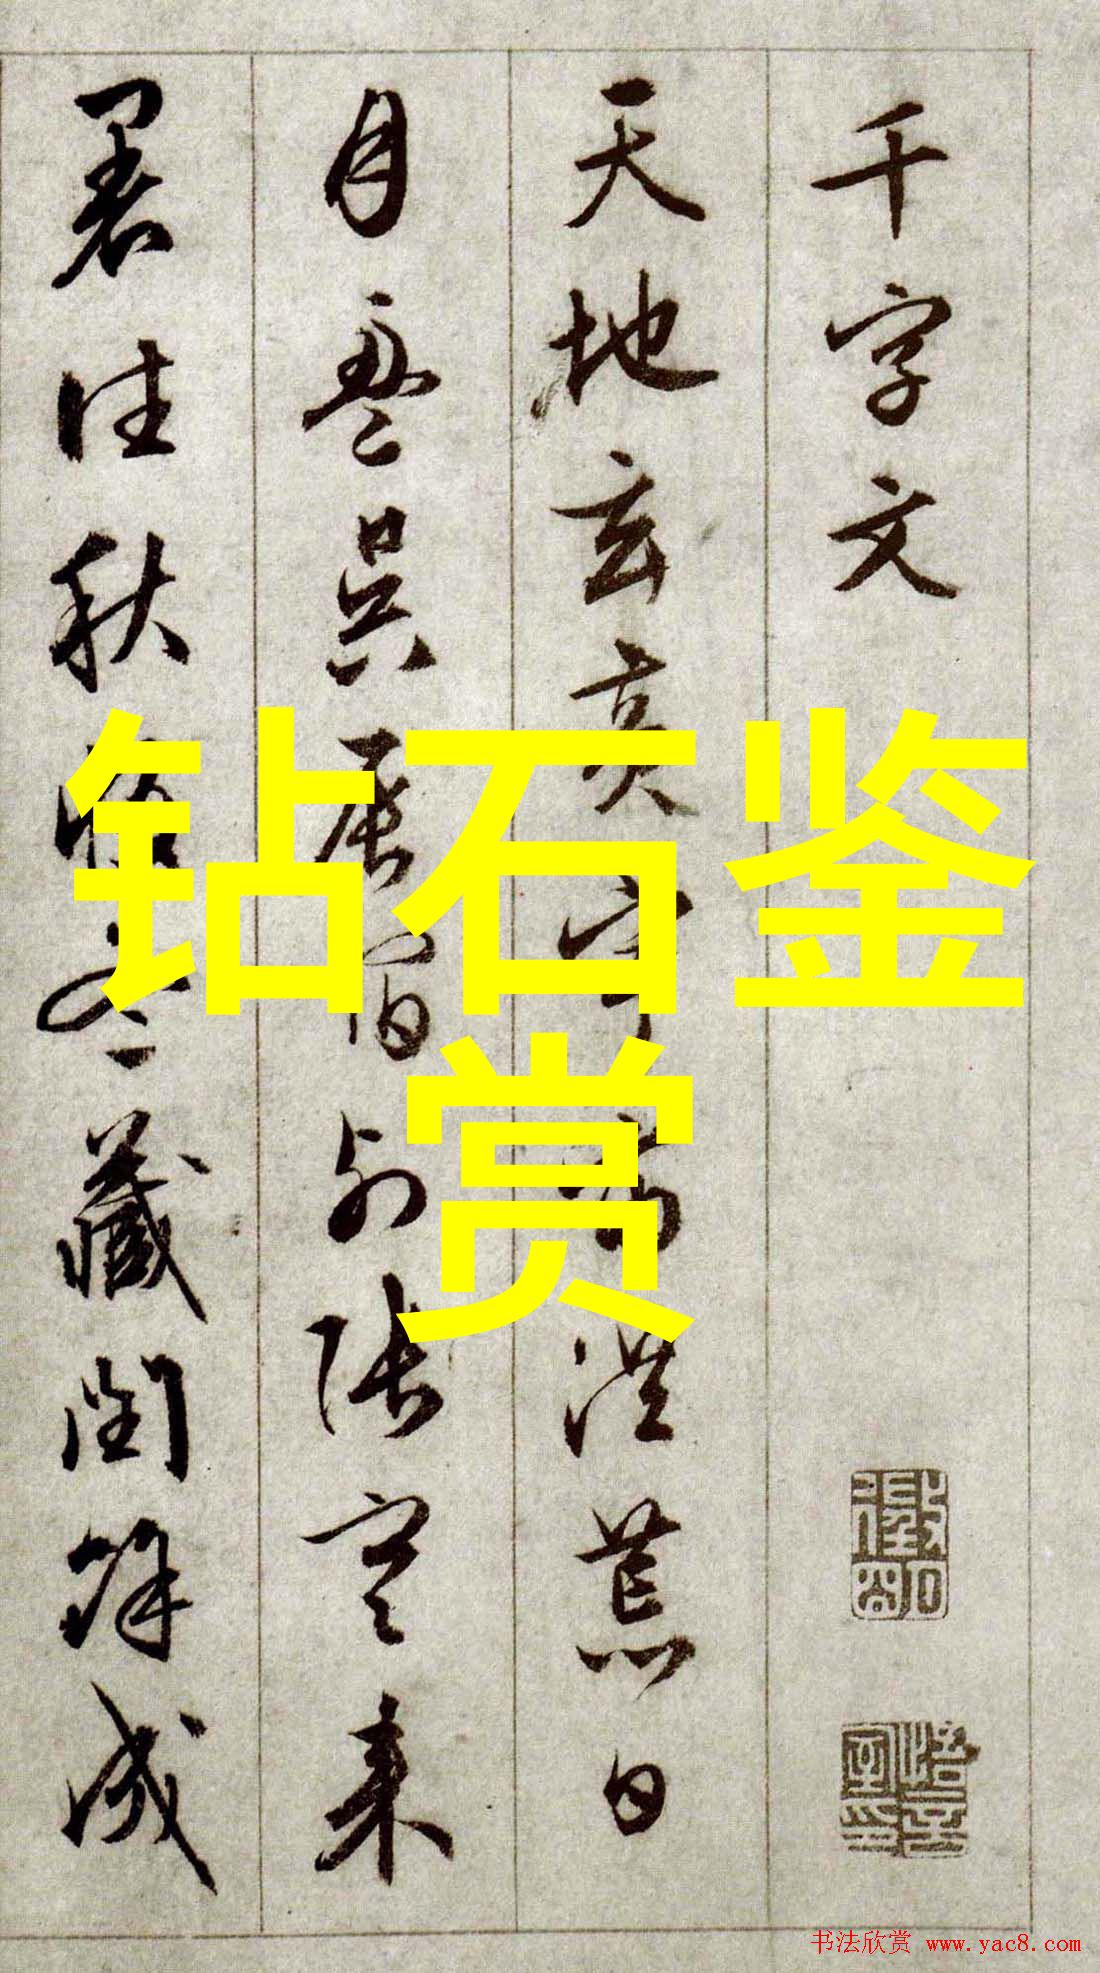 千字文
天地玄黃宇宙洪荒日
月盈昃辰宿列張寒来
暑往秋收冬藏閏餘成
钻石鉴
赏
书法欣赏 www.yac8.com